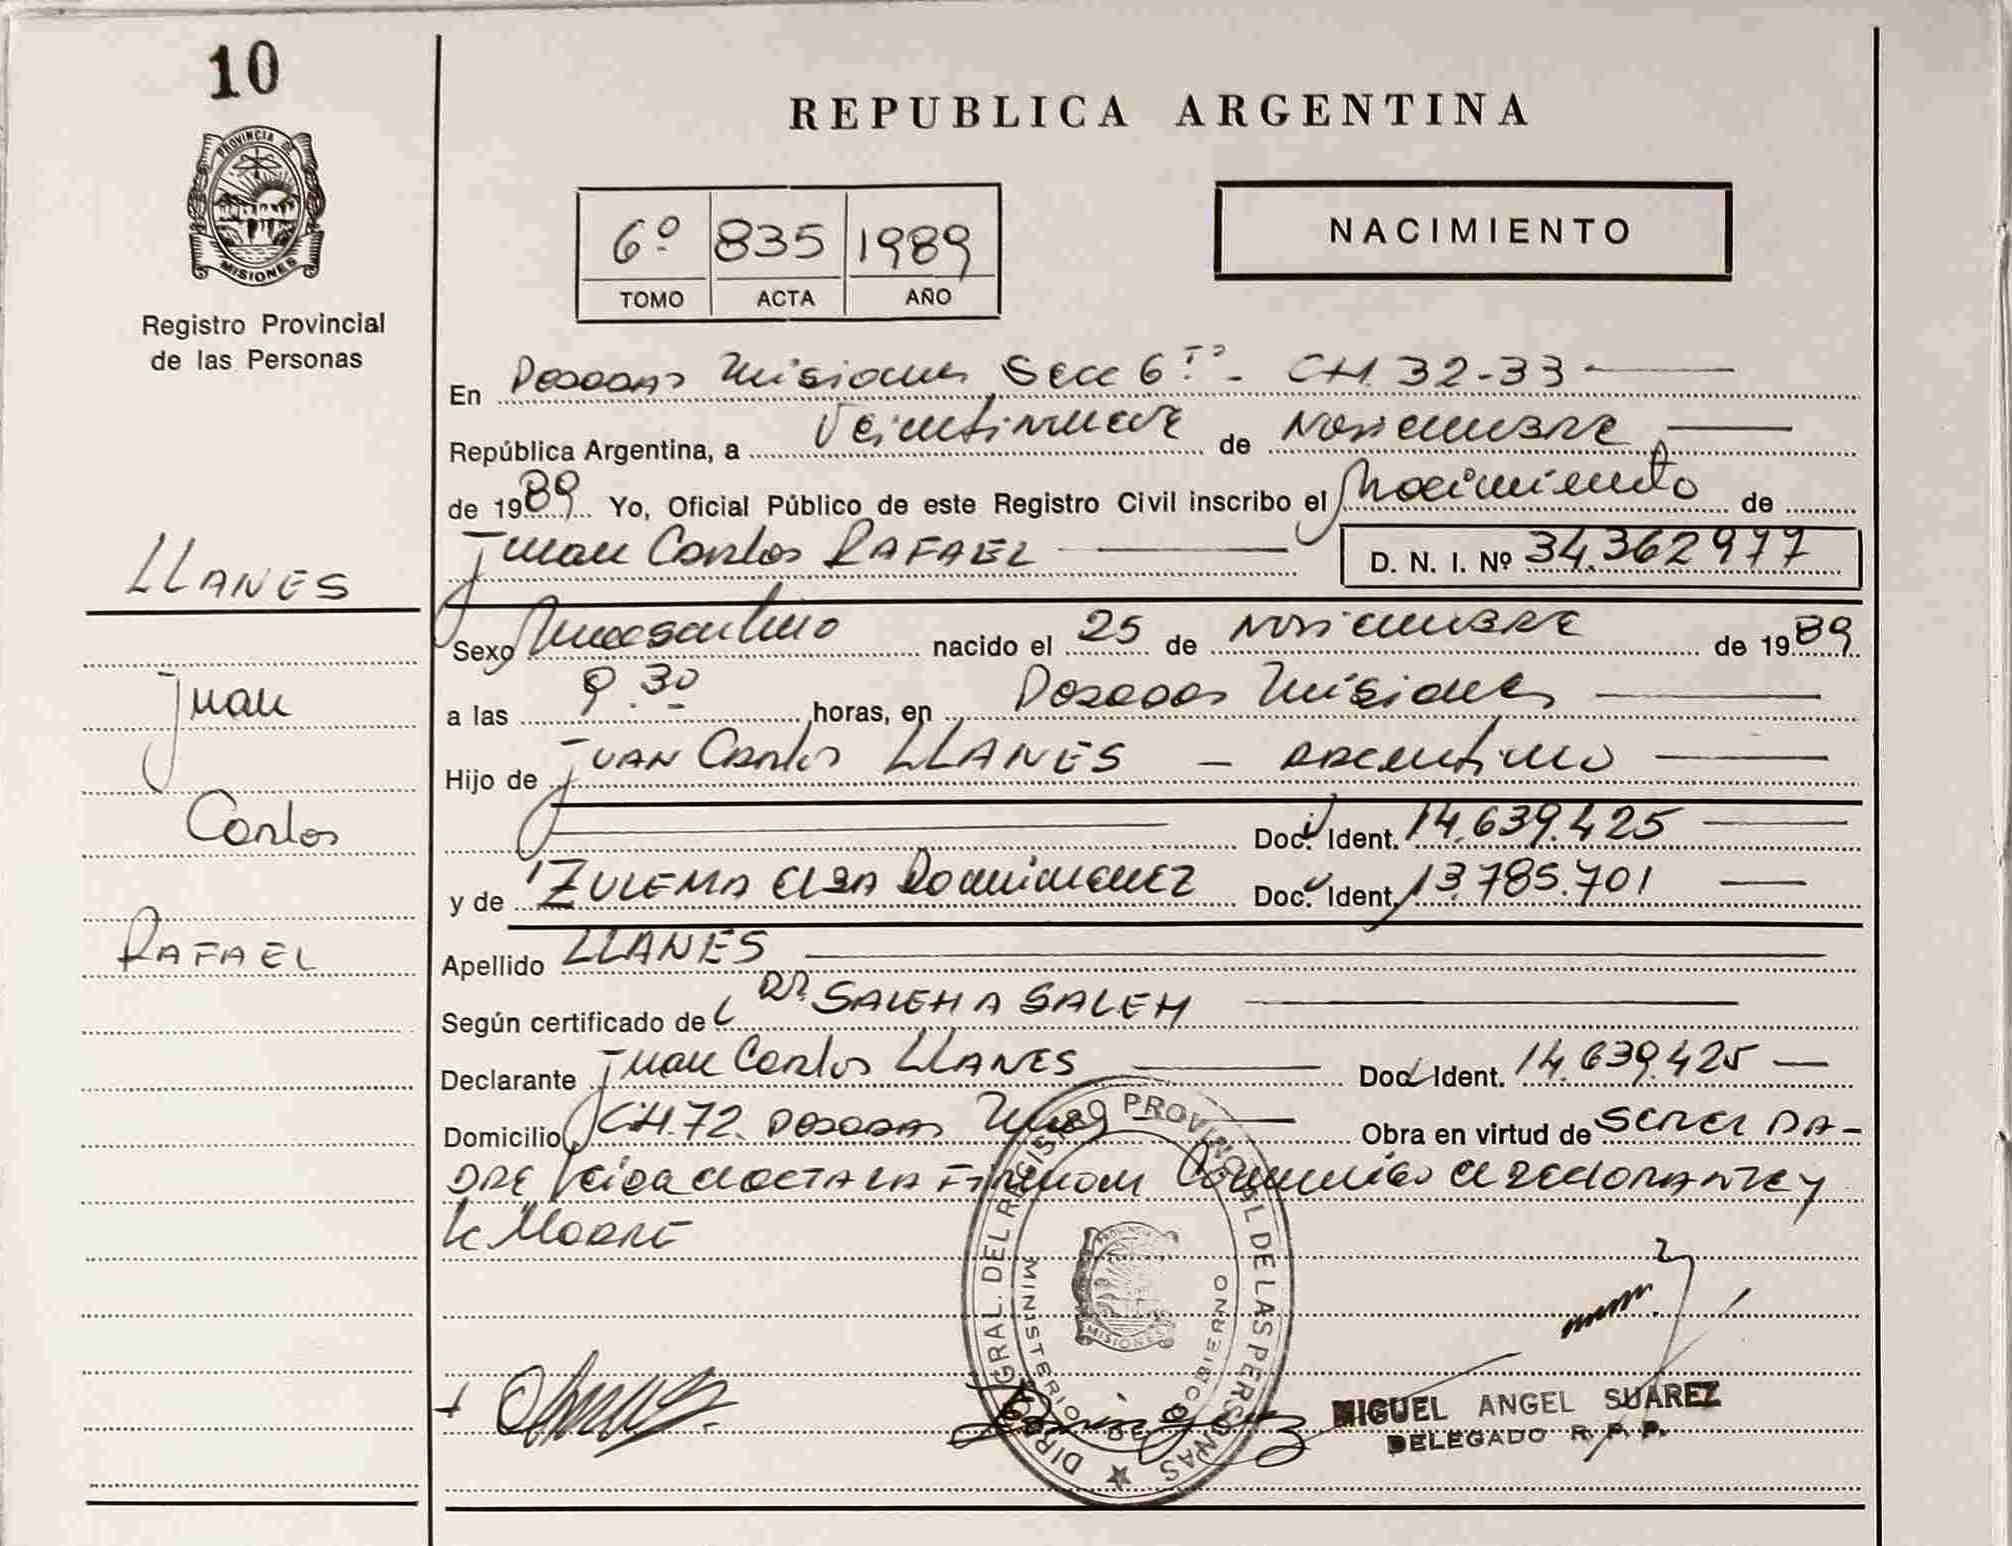 10
PROVINCIA DE
MISIONES
Registro Provincial
de las Personas
LLANES
Juan
Carlos
RAFAEL
REPUBLICA ARGENTINA
6º 835 1989
TOMO ACTA AÑO
NACIMIENTO
En Posadas Misiones Secc 6ta - CH. 32-33
República Argentina, a Veintinueve de Noviembre
de 1989 Yo, Oficial Público de este Registro Civil inscribo el Nacimiento de
Juan Carlos RAFAEL D. N. I. Nº 34.362977
Sexo Masculino nacido el 25 de Noviembre de 1989
a las 9.30 horas, en Posadas Misiones
Hijo de JUAN Carlos LLANES - ARGENTINO
Doc. Ident. 14.639.425
y de ZULEMA ELSA Dominguez Doc. Ident. 13.785.701
Apellido LLANES
Según certificado de DRA SALEHA SALEM
Declarante Juan Carlos LLANES Doc. Ident. 14.639.425
Domicilio CH. 72 Posadas Mnes Obra en virtud de SER EL PA-
DRE Leida el ACTA LA FIRMAN Conmigo el DECLARANTE y
la MADRE
DIR. GRAL. DEL REGISTRO PROVINCIAL DE LAS PERSONAS
MINISTERIO DE GOBIERNO
MISIONES
MIGUEL ANGEL SUAREZ
DELEGADO R. P. P.